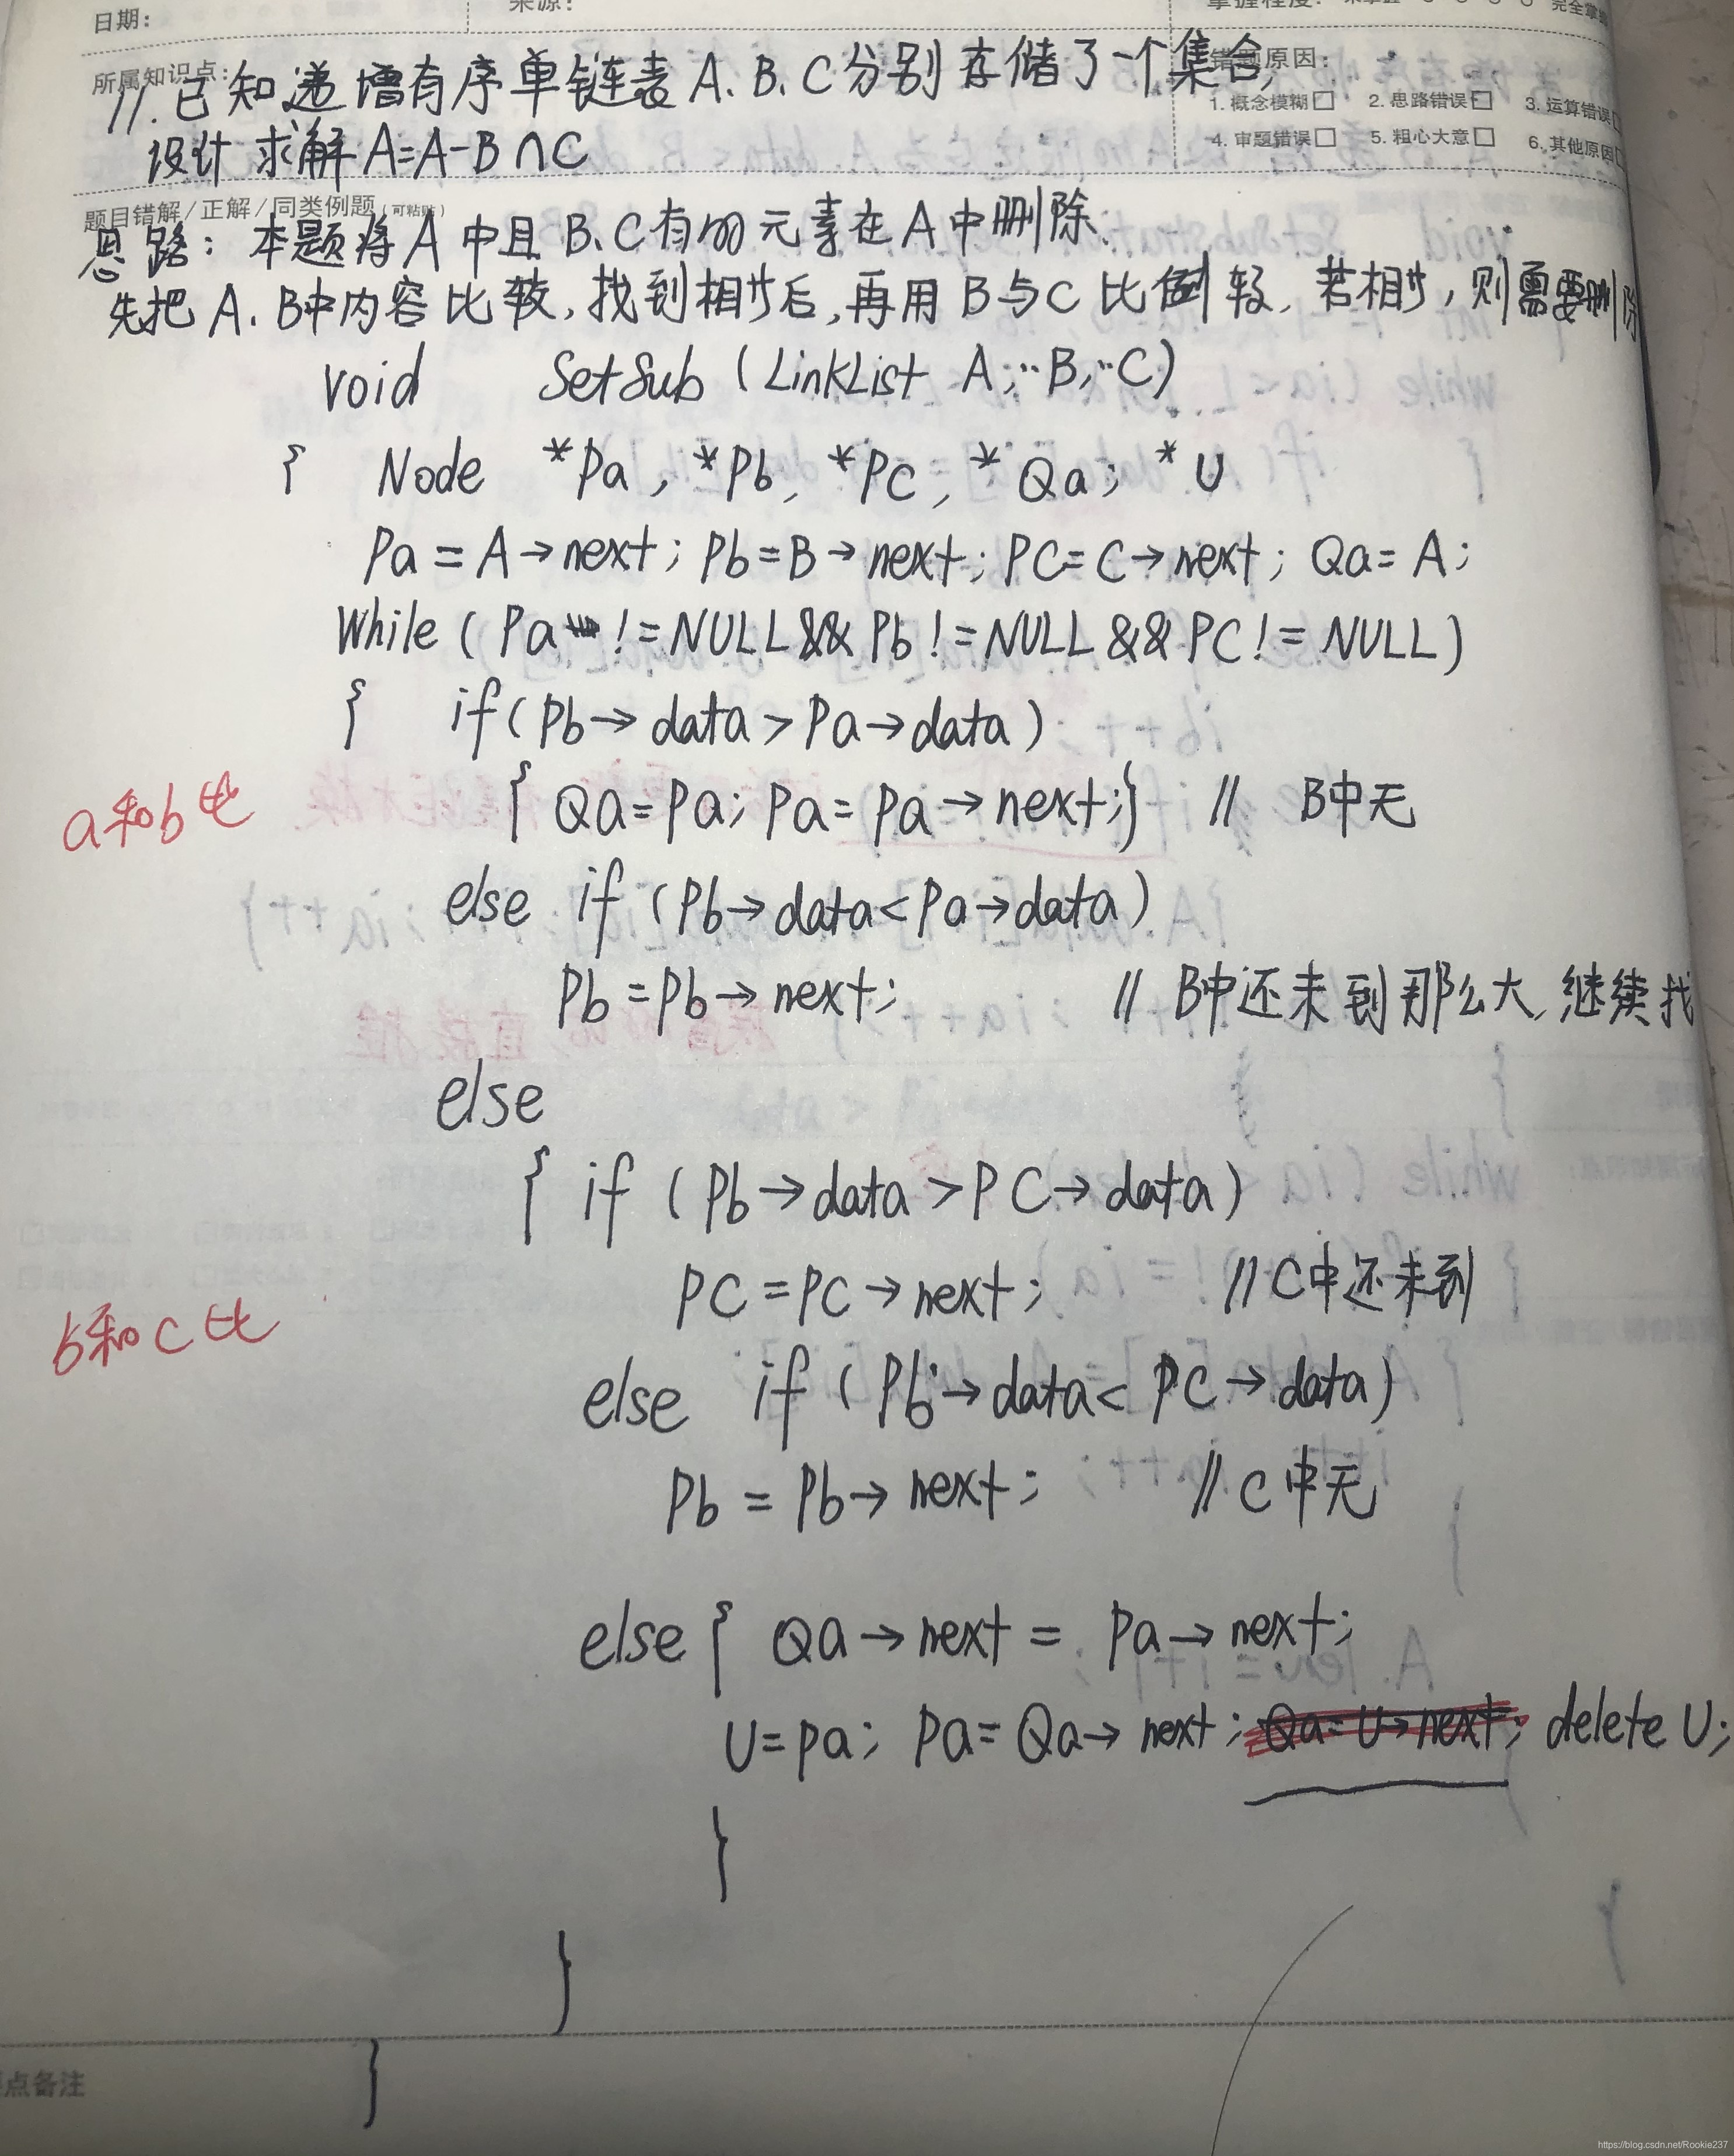 日期：
来源：
掌握程度：
完全掌
所属知识点：
错题原因：
1. 概念模糊□ 2. 思路错误□ 3. 运算错误□
4. 审题错误□ 5. 粗心大意□ 6. 其他原因□
11. 已知递增有序单链表A.B.C分别存储了一个集合，
设计求解A=A-B∩C
题目错解/正解/同类例题（可粘贴）
思路：本题将A中且B、C有的元素在A中删除.
先把A.B中内容比较，找到相步后，再用B与C比较，若相步，则需要删除
void SetSub (LinkList A,··B,··C)
{ Node *Pa, *Pb, *PC, *Qa; *U
Pa=A→next; Pb=B→next; PC=C→next; Qa=A;
While (Pa !=NULL && Pb !=NULL && PC != NULL)
{ if(Pb→data>Pa→data)
a和b比
{ Qa=Pa; Pa=Pa→next;} // B中无
else if (Pb→data<Pa→data)
Pb=Pb→next; // B中还未到那么大, 继续找
else
{ if (Pb→data>PC→data)
PC=PC→next; // C中还未到
b和c比
else if (Pb→data<PC→data)
Pb=Pb→next; // C中无
else { Qa→next = Pa→next;
U=Pa; Pa=Qa→next; Qa=U→next; delete U;
}
}
}
点备注
https://blog.csdn.net/Rookie237